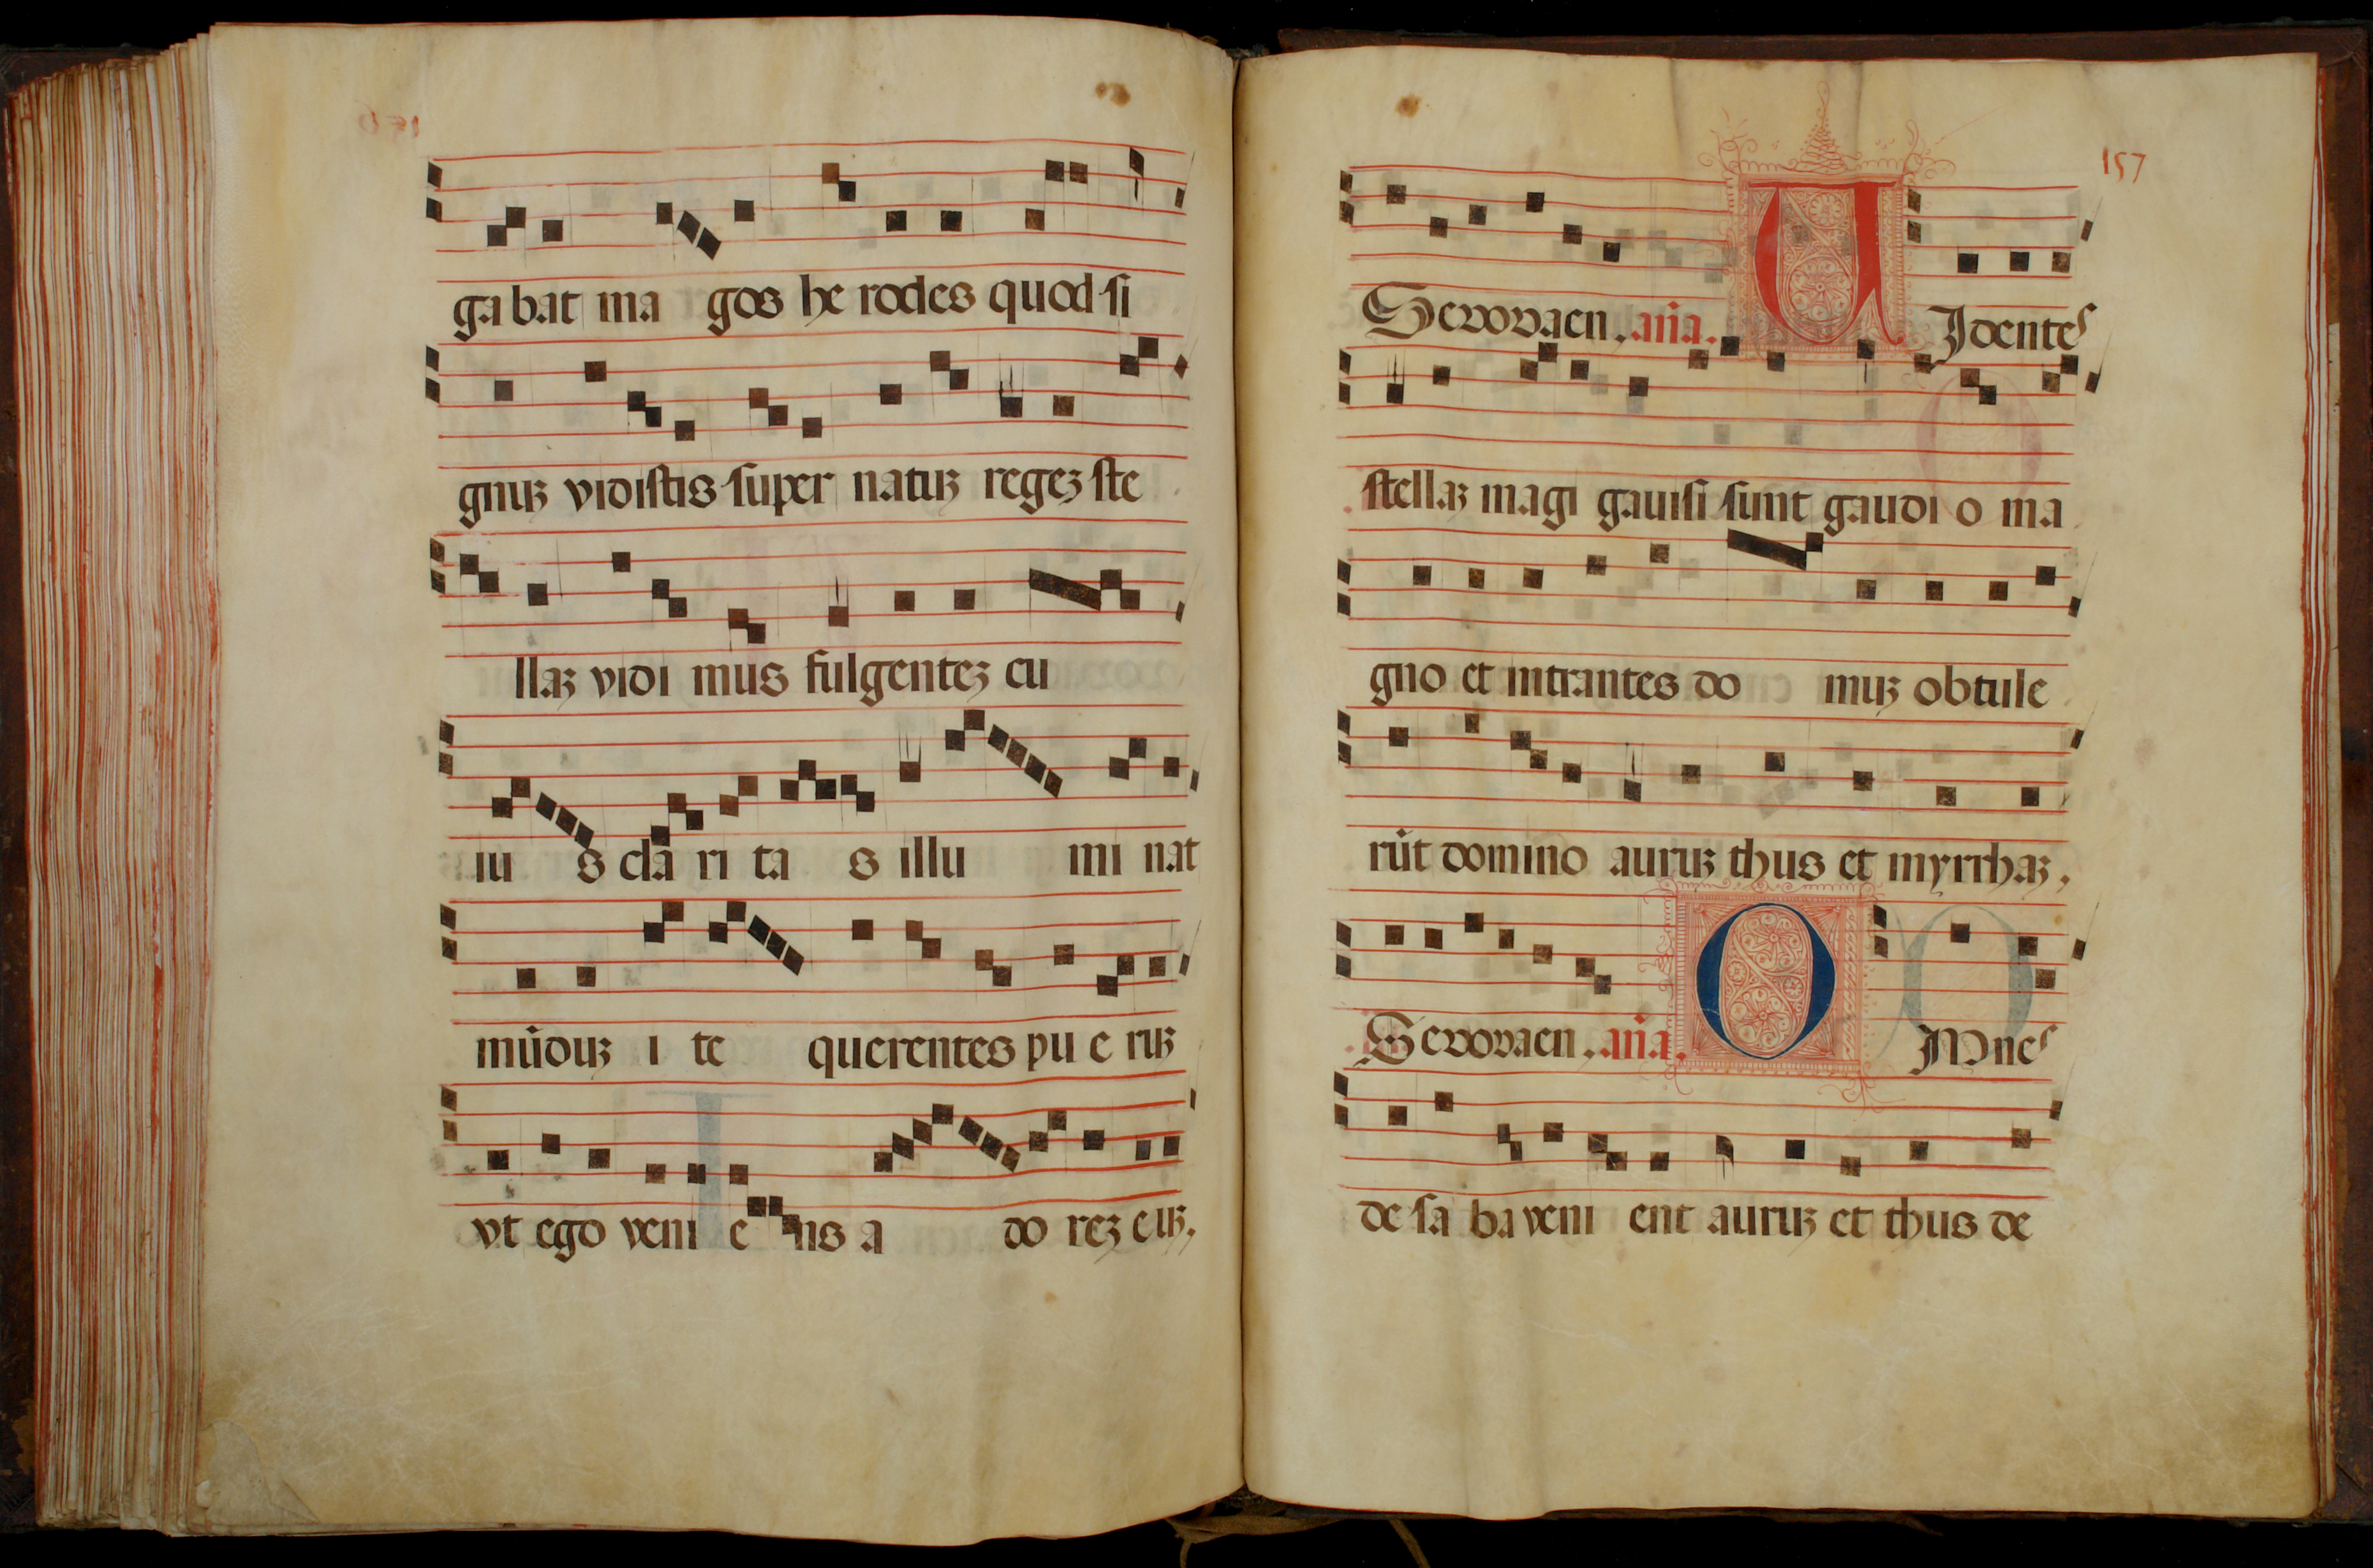 gabat ma gos he rodes quod si
gnuꝫ vidistis super natuꝫ regeꝫ ste
llaꝫ vidi mus fulgenteꝫ eu
iu s cla ri ta s illu mi nat
mūduꝫ i te querentes pu e ruꝫ
vt ego veni e ns a do reꝫ euꝫ.
157
Sevovaen. aña. U Identes
stellaꝫ magi gauisi sunt gaudi o ma
gno et intrantes do muꝫ obtule
rūt domino auruꝫ thus et myrrhaꝫ.
Sevovaen. aña. O Mnes
de sa ba veni ent auruꝫ et thus de